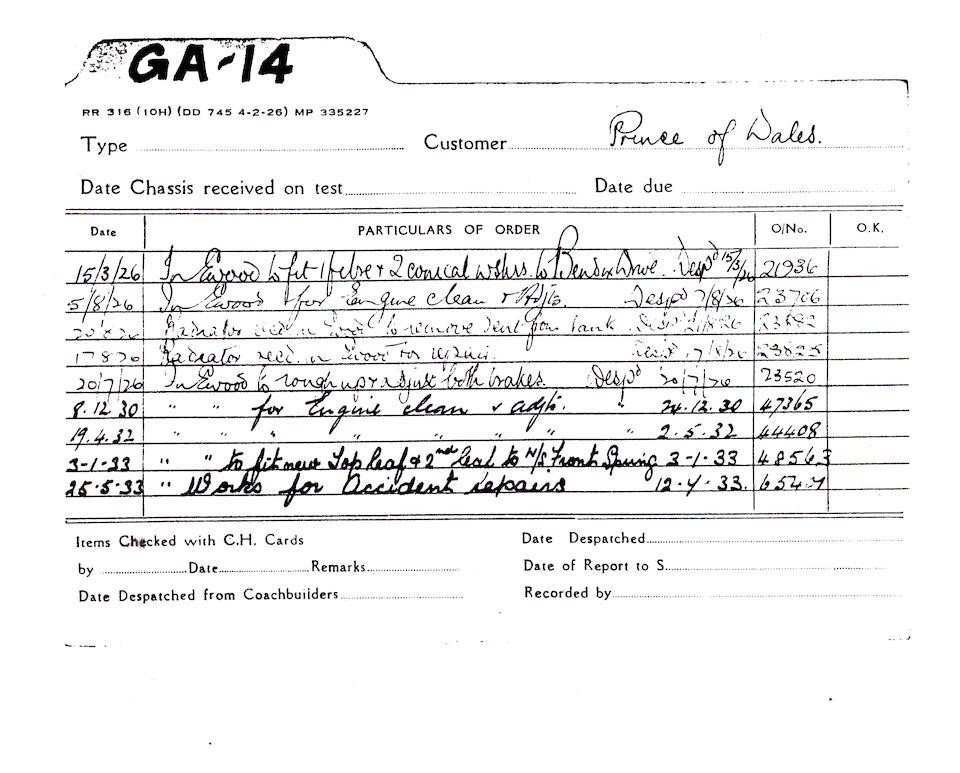 GA-14
RR 316 (10H) (DD 745 4-2-26) MP 335227
Type Customer Prince of Wales.
Date Chassis received on test Date due
Date PARTICULARS OF ORDER O/No. O.K.
15/3/26 In Ewood to fit 1 felse & 2 conical wshrs. to Bendix Drive. Desp'd 15/3/26 21936
5/8/26 In Ewood for Engine clean & Adjts. Desp'd 7/8/26 23706
Radiator recd. in Ewood to remove dent from tank Desp'd
17 8 26 Radiator recd. in Ewood for repair. 17/8/26 23825
20/7/26 In Ewood to rough up & adjust both brakes. Desp'd 20/7/26 23520
8.12.30 " " for Engine clean & adjts. " 24.12.30 47365
19.4.32 " " " " " " " " 2.5.32 44408
3-1-33 " " to fit new Top leaf & 2nd leaf to N/S Front Spring 3-1-33 48563
25.5.33 " Works for accident repairs 12.4.33.
Items Checked with C.H. Cards Date Despatched
by Date Remarks Date of Report to S.
Date Despatched from Coachbuilders Recorded by